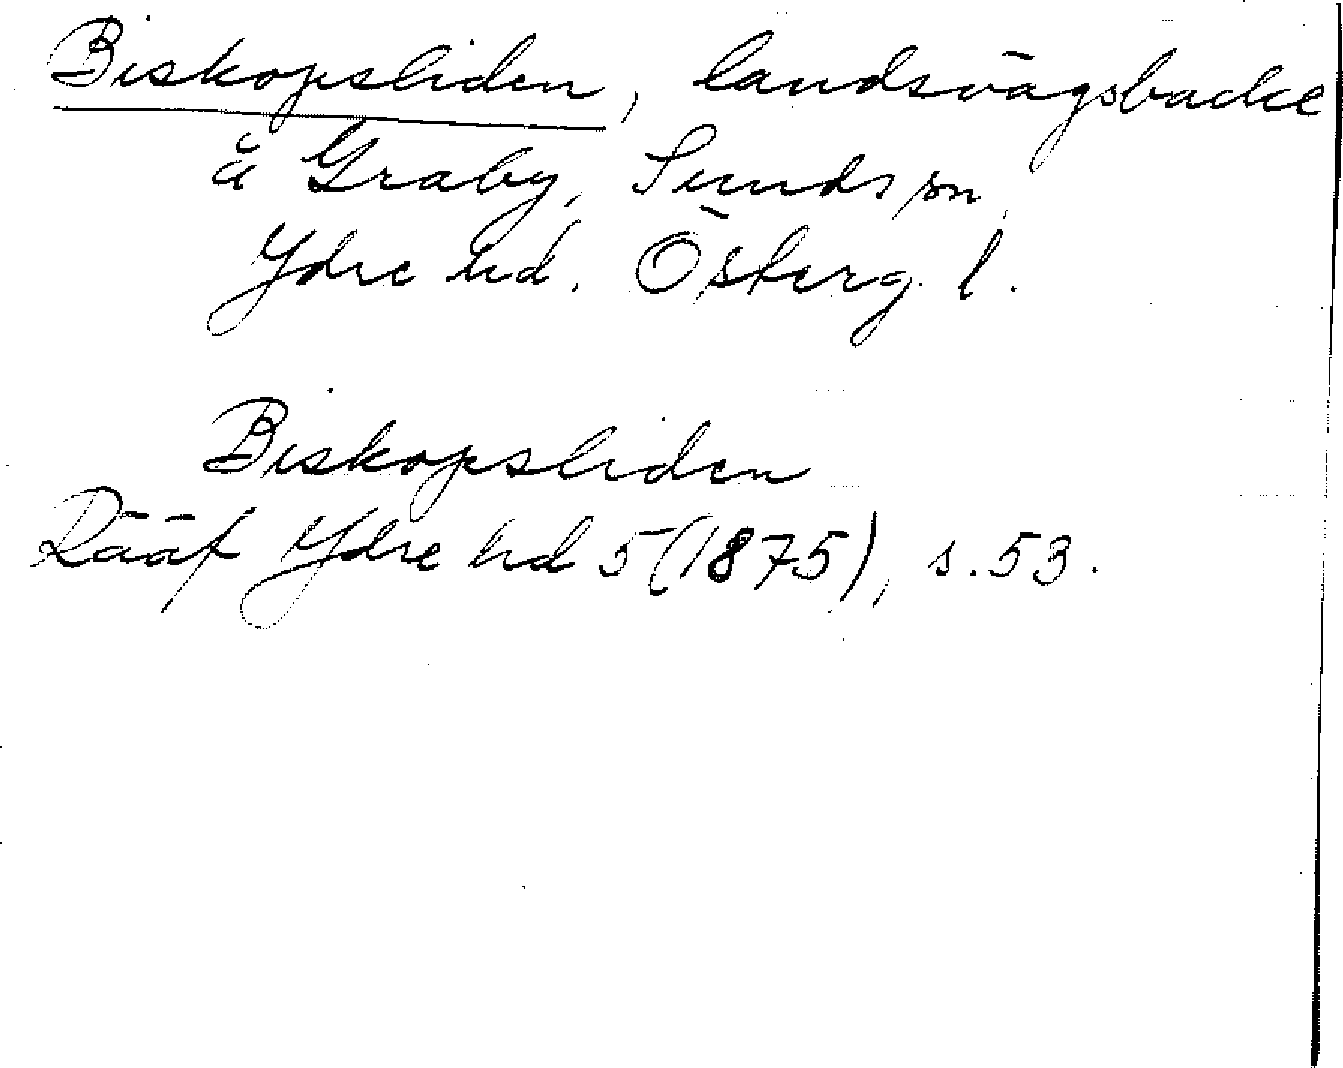 Biskopsliden, landsvägsbacke
å Graby, Sunds sn,
Ydre hd. Österg. l.
Biskopsliden
Rääf Ydre hd 5 (1875), s. 53.